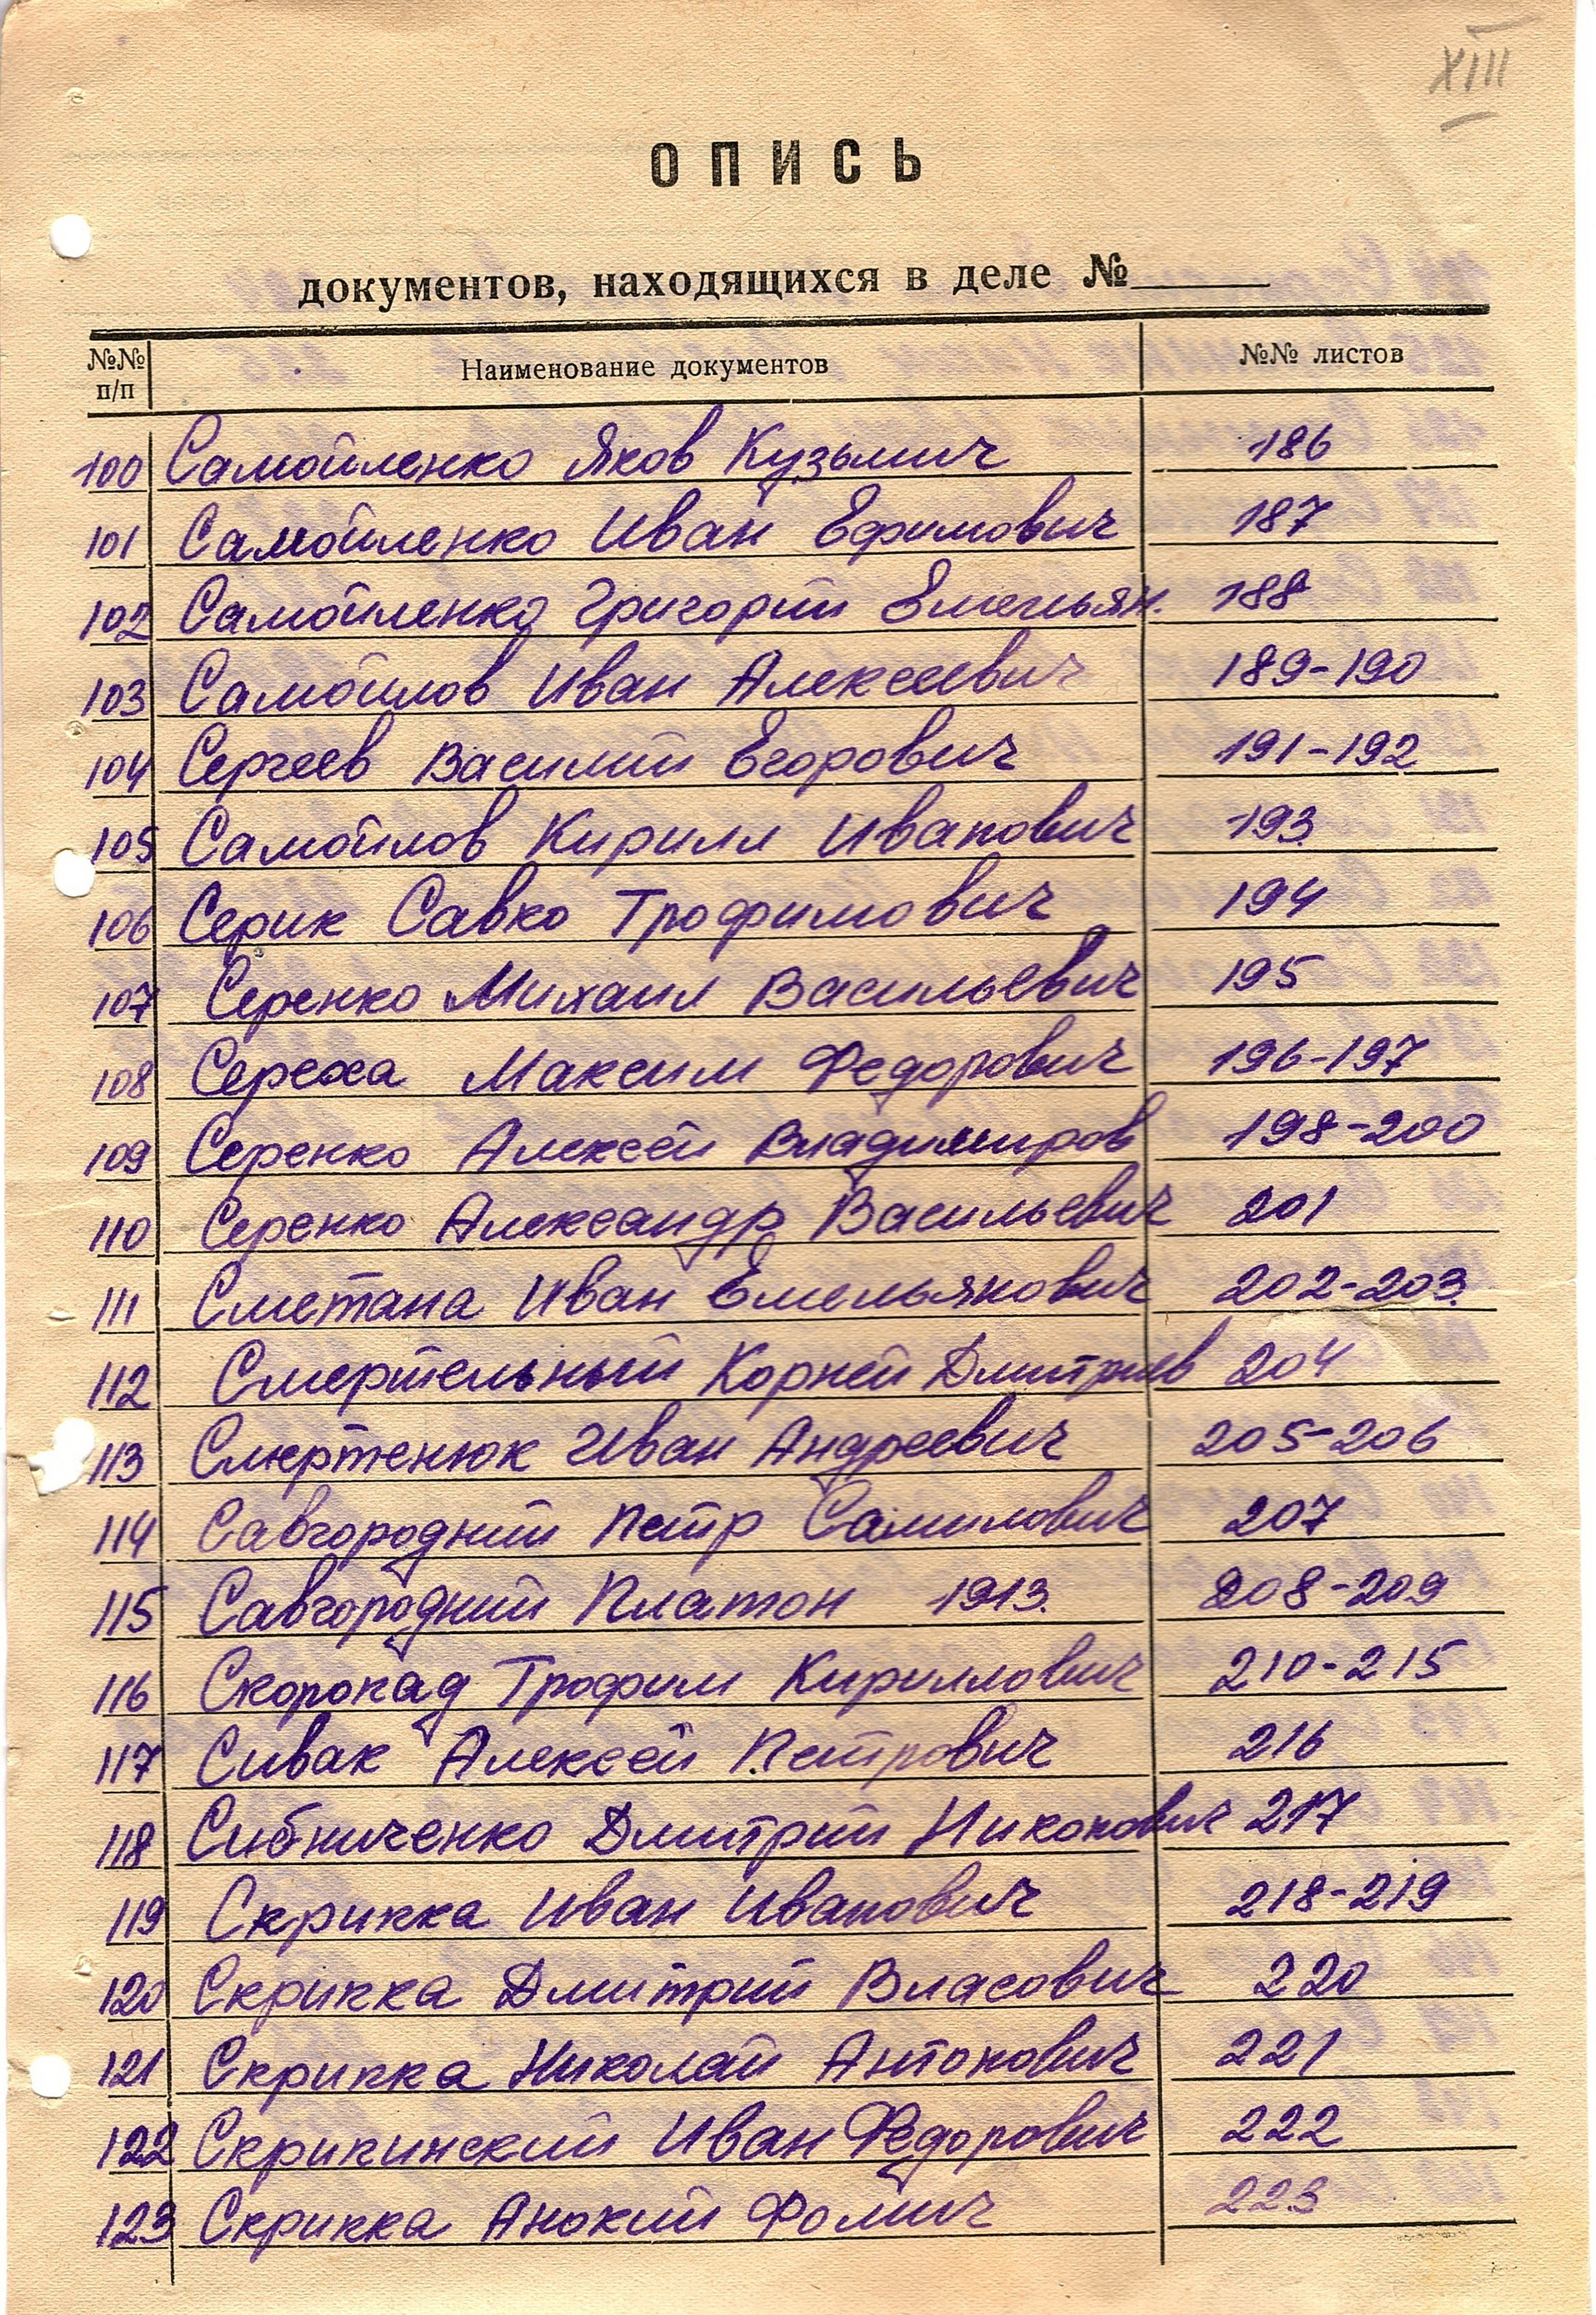 XIII
ОПИСЬ
документов, находящихся в деле №
№№ п/п Наименование документов №№ листов
100 Самойленко Яков Кузьмич 186
101 Самойленко Иван Ефимович 187
102 Самойленко Григорий Емельян. 188
103 Самойлов Иван Алексеевич 189-190
104 Сергеев Василий Егорович 191-192
105 Самойлов Кирилл Иванович 193
106 Серик Савко Трофимович 194
107 Серенко Михаил Васильевич 195
108 Сереха Максим Федорович 196-197
109 Серенко Алексей Владимиров 198-200
110 Серенко Александр Васильевич 201
111 Сметана Иван Емельянович 202-203
112 Смертельный Корней Дмитриев 204
113 Смертенюк Иван Андреевич 205-206
114 Савгородний Петр Самилович 207
115 Савгородний Платон 1913. 208-209
116 Скоропад Трофим Кириллович 210-215
117 Сивак Алексей Петрович 216
118 Сибниченко Дмитрий Никонович 217
119 Скрипка Иван Иванович 218-219
120 Скрипка Дмитрий Власович 220
121 Скрипка Николай Антонович 221
122 Скрипинский Иван Федорович 222
123 Скрипка Анокий Фомич 223